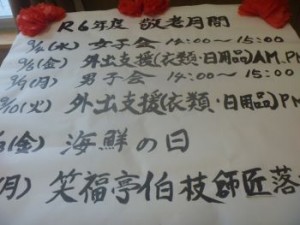 R6年度 敬老月間
9/4(水) 女子会 14:00～15:00
9/6(金) 外出支援(衣類・日用品)AM.P
9/9(月) 男子会 14:00～15:00
/10(火) 外出支援(衣類・日用品)P
(金) 海鮮の日
月) 笑福亭伯枝師匠落